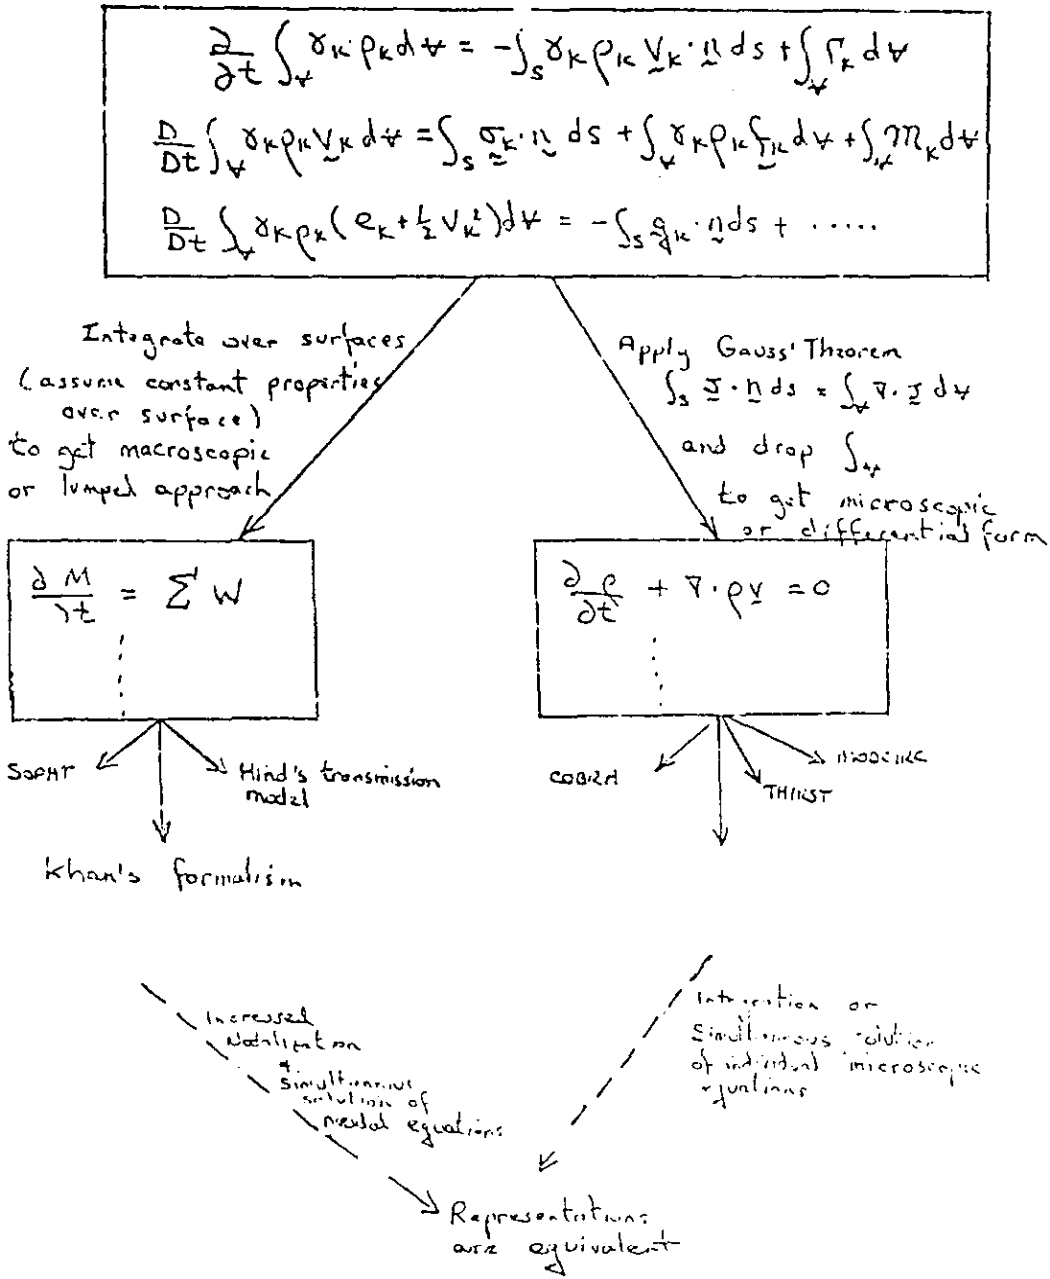 ∂/∂t ∫_V γ_k ρ_k dV = -∫_S γ_k ρ_k v_k · n ds + ∫_V Γ_k dV
D/Dt ∫_V γ_k ρ_k v_k dV = ∫_S σ_k · n ds + ∫_V γ_k ρ_k f_k dV + ∫_V M_k dV
D/Dt ∫_V γ_k ρ_k (e_k + 1/2 V_k²) dV = -∫_S q_k · n ds + .....
Integrate over surfaces
(assume constant properties
over surface)
to get macroscopic
or lumped approach
Apply Gauss' Theorem
∫_S J · n ds = ∫_V ∇ · J dV
and drop ∫_V
to get microscopic
or differential form
∂M/∂t = Σ W
∂ρ/∂t + ∇ · ρv = 0
SOPHT
Hind's transmission
model
Khan's formalism
COBRA
THIRST
Increased
Nodalization
+
Simultaneous
solution of
nodal equations
Integration or
Simultaneous solution
of individual microscopic
equations
Representations
are equivalent